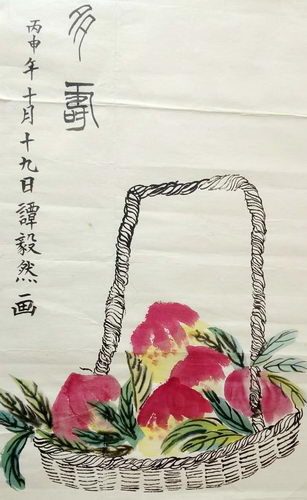 多壽
丙申年十月十九日譚毅然画